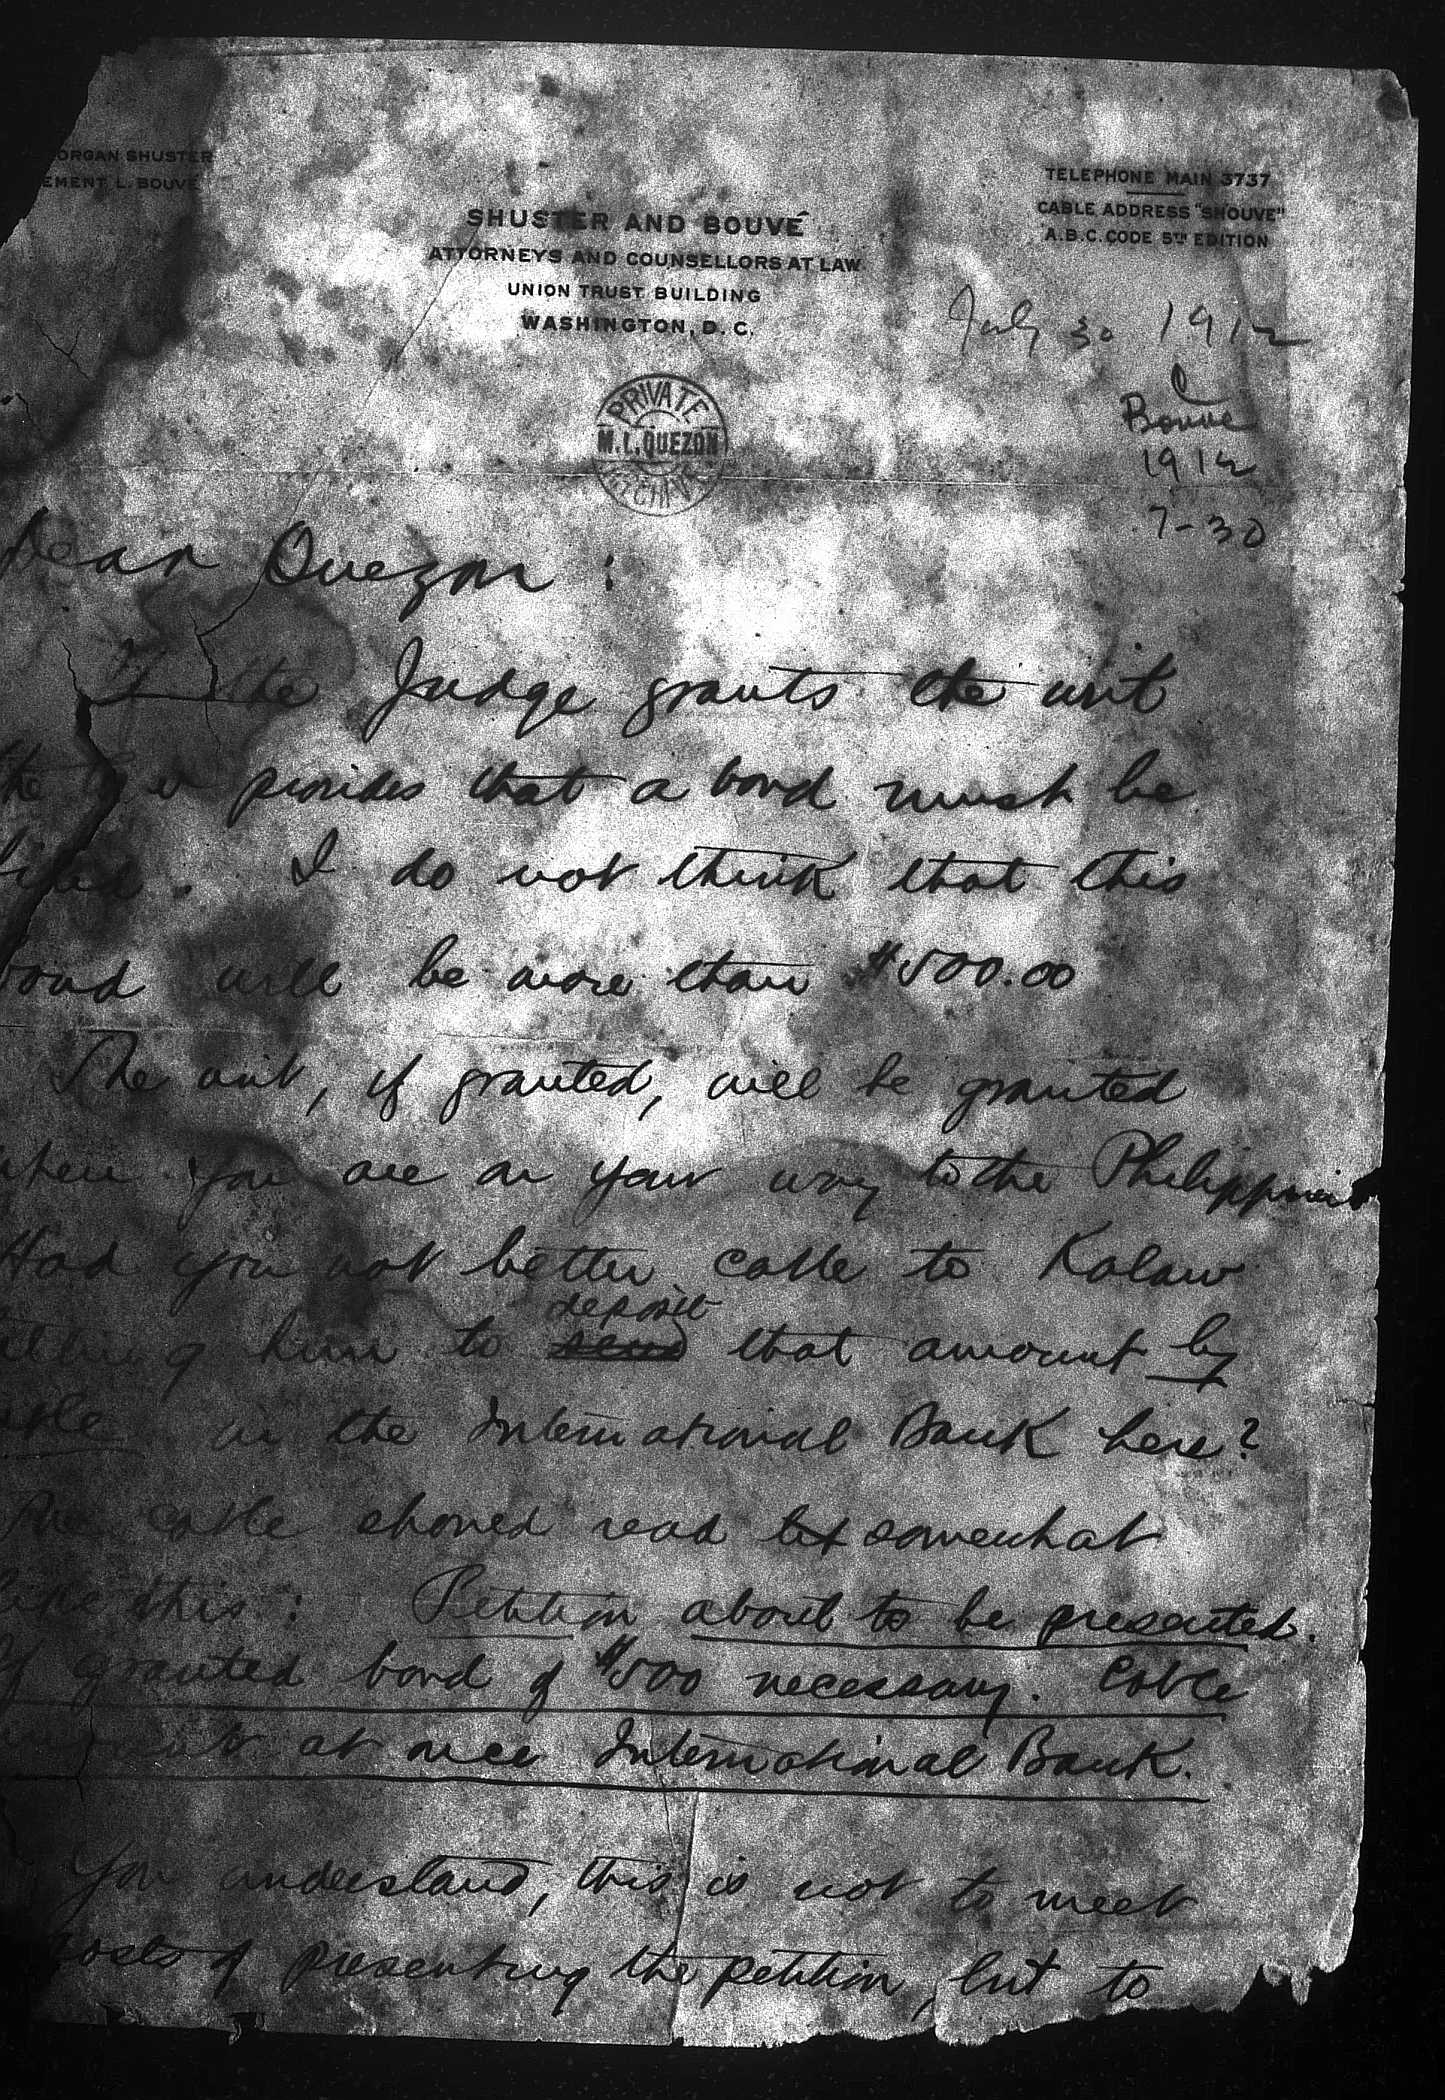 ORGAN SHUSTER
EMENT L. BOUVÉ
TELEPHONE MAIN 3737
CABLE ADDRESS "SHOUVE"
A.B.C. CODE 5TH EDITION
SHUSTER AND BOUVÉ
ATTORNEYS AND COUNSELLORS AT LAW
UNION TRUST BUILDING
WASHINGTON, D. C.
July 30 1912
PRIVATE
M. L. QUEZON
Bouve
1912
7-30
Dear Quezon :
If the Judge grants the writ
the provides that a bond must be
filed. I do not think that this
bond will be more than $500.00
The writ, if granted, will be granted
when you are on your way to the Philippines
Had you not better cable to Kalaw
deposit
telling him to send that amount by
cable in the International Bank here?
The cable should read somewhat
like this : Petition about to be presented.
If granted bond of $500 necessary. Cable
amount at once International Bank.
You understand, this is not to meet
costs of presenting the petition, but to